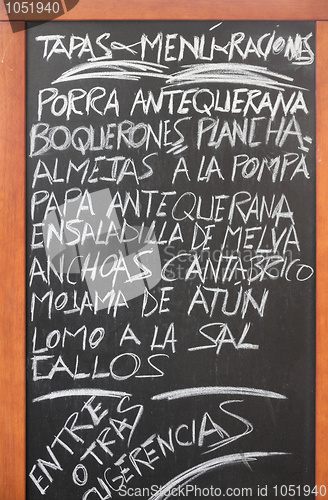 TAPAS-MENÚ-RACIONES
PORRA ANTEQUERANA
BOQUERONES PLANCHA-
ALMEJAS A LA POMPA
PAPA ANTEQUERANA
ENSALADILLA DE MELVA
ANCHOAS CANTABRICO
MOJAMA DE ATUN
LOMO A LA SAL
CALLOS
ENTRE
OTRAS
SUGERENCIAS
© 1051940
© 1051940
© crestock.com
© 1051940